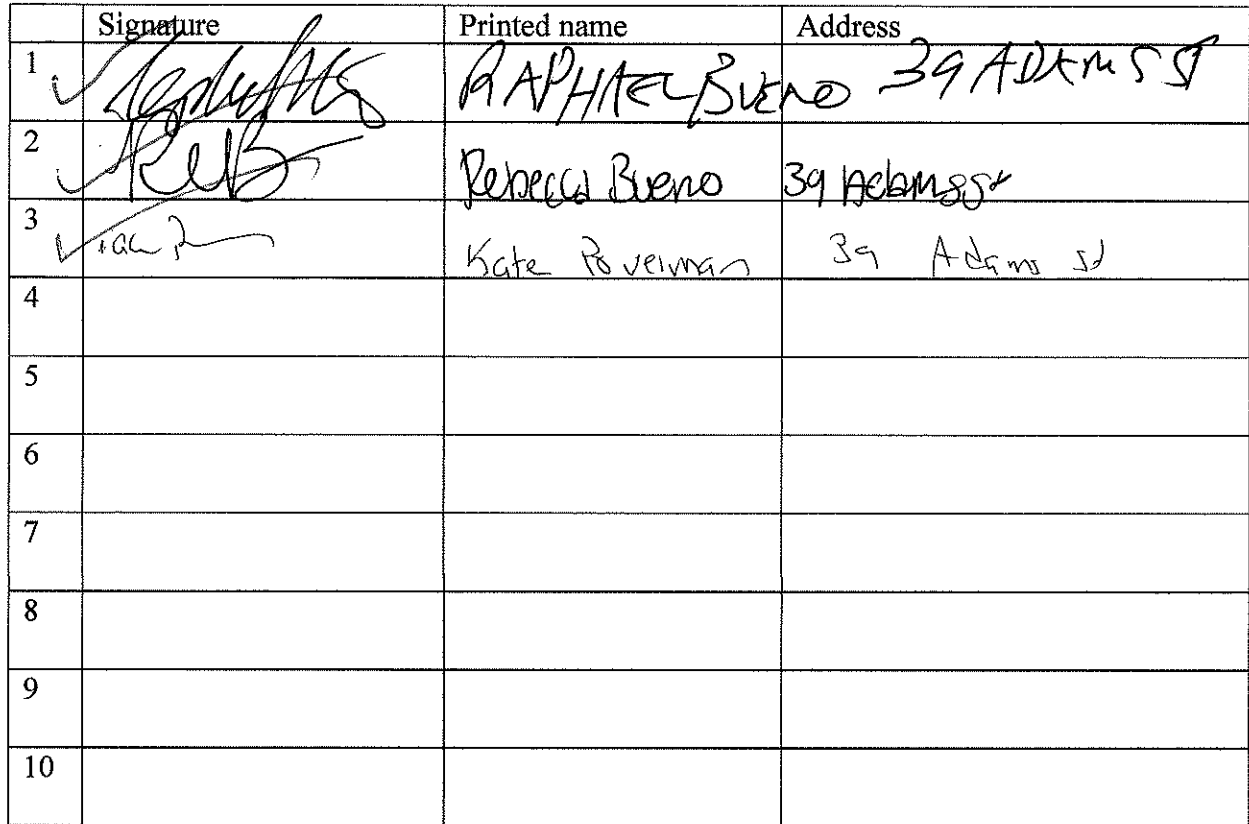 Signature Printed name Address
1 RAPHAEL BUENO 39 ADAMS ST
2 Rebecca Bueno 39 Adams st
3 Kate 39 Adams st
4
5
6
7
8
9
10